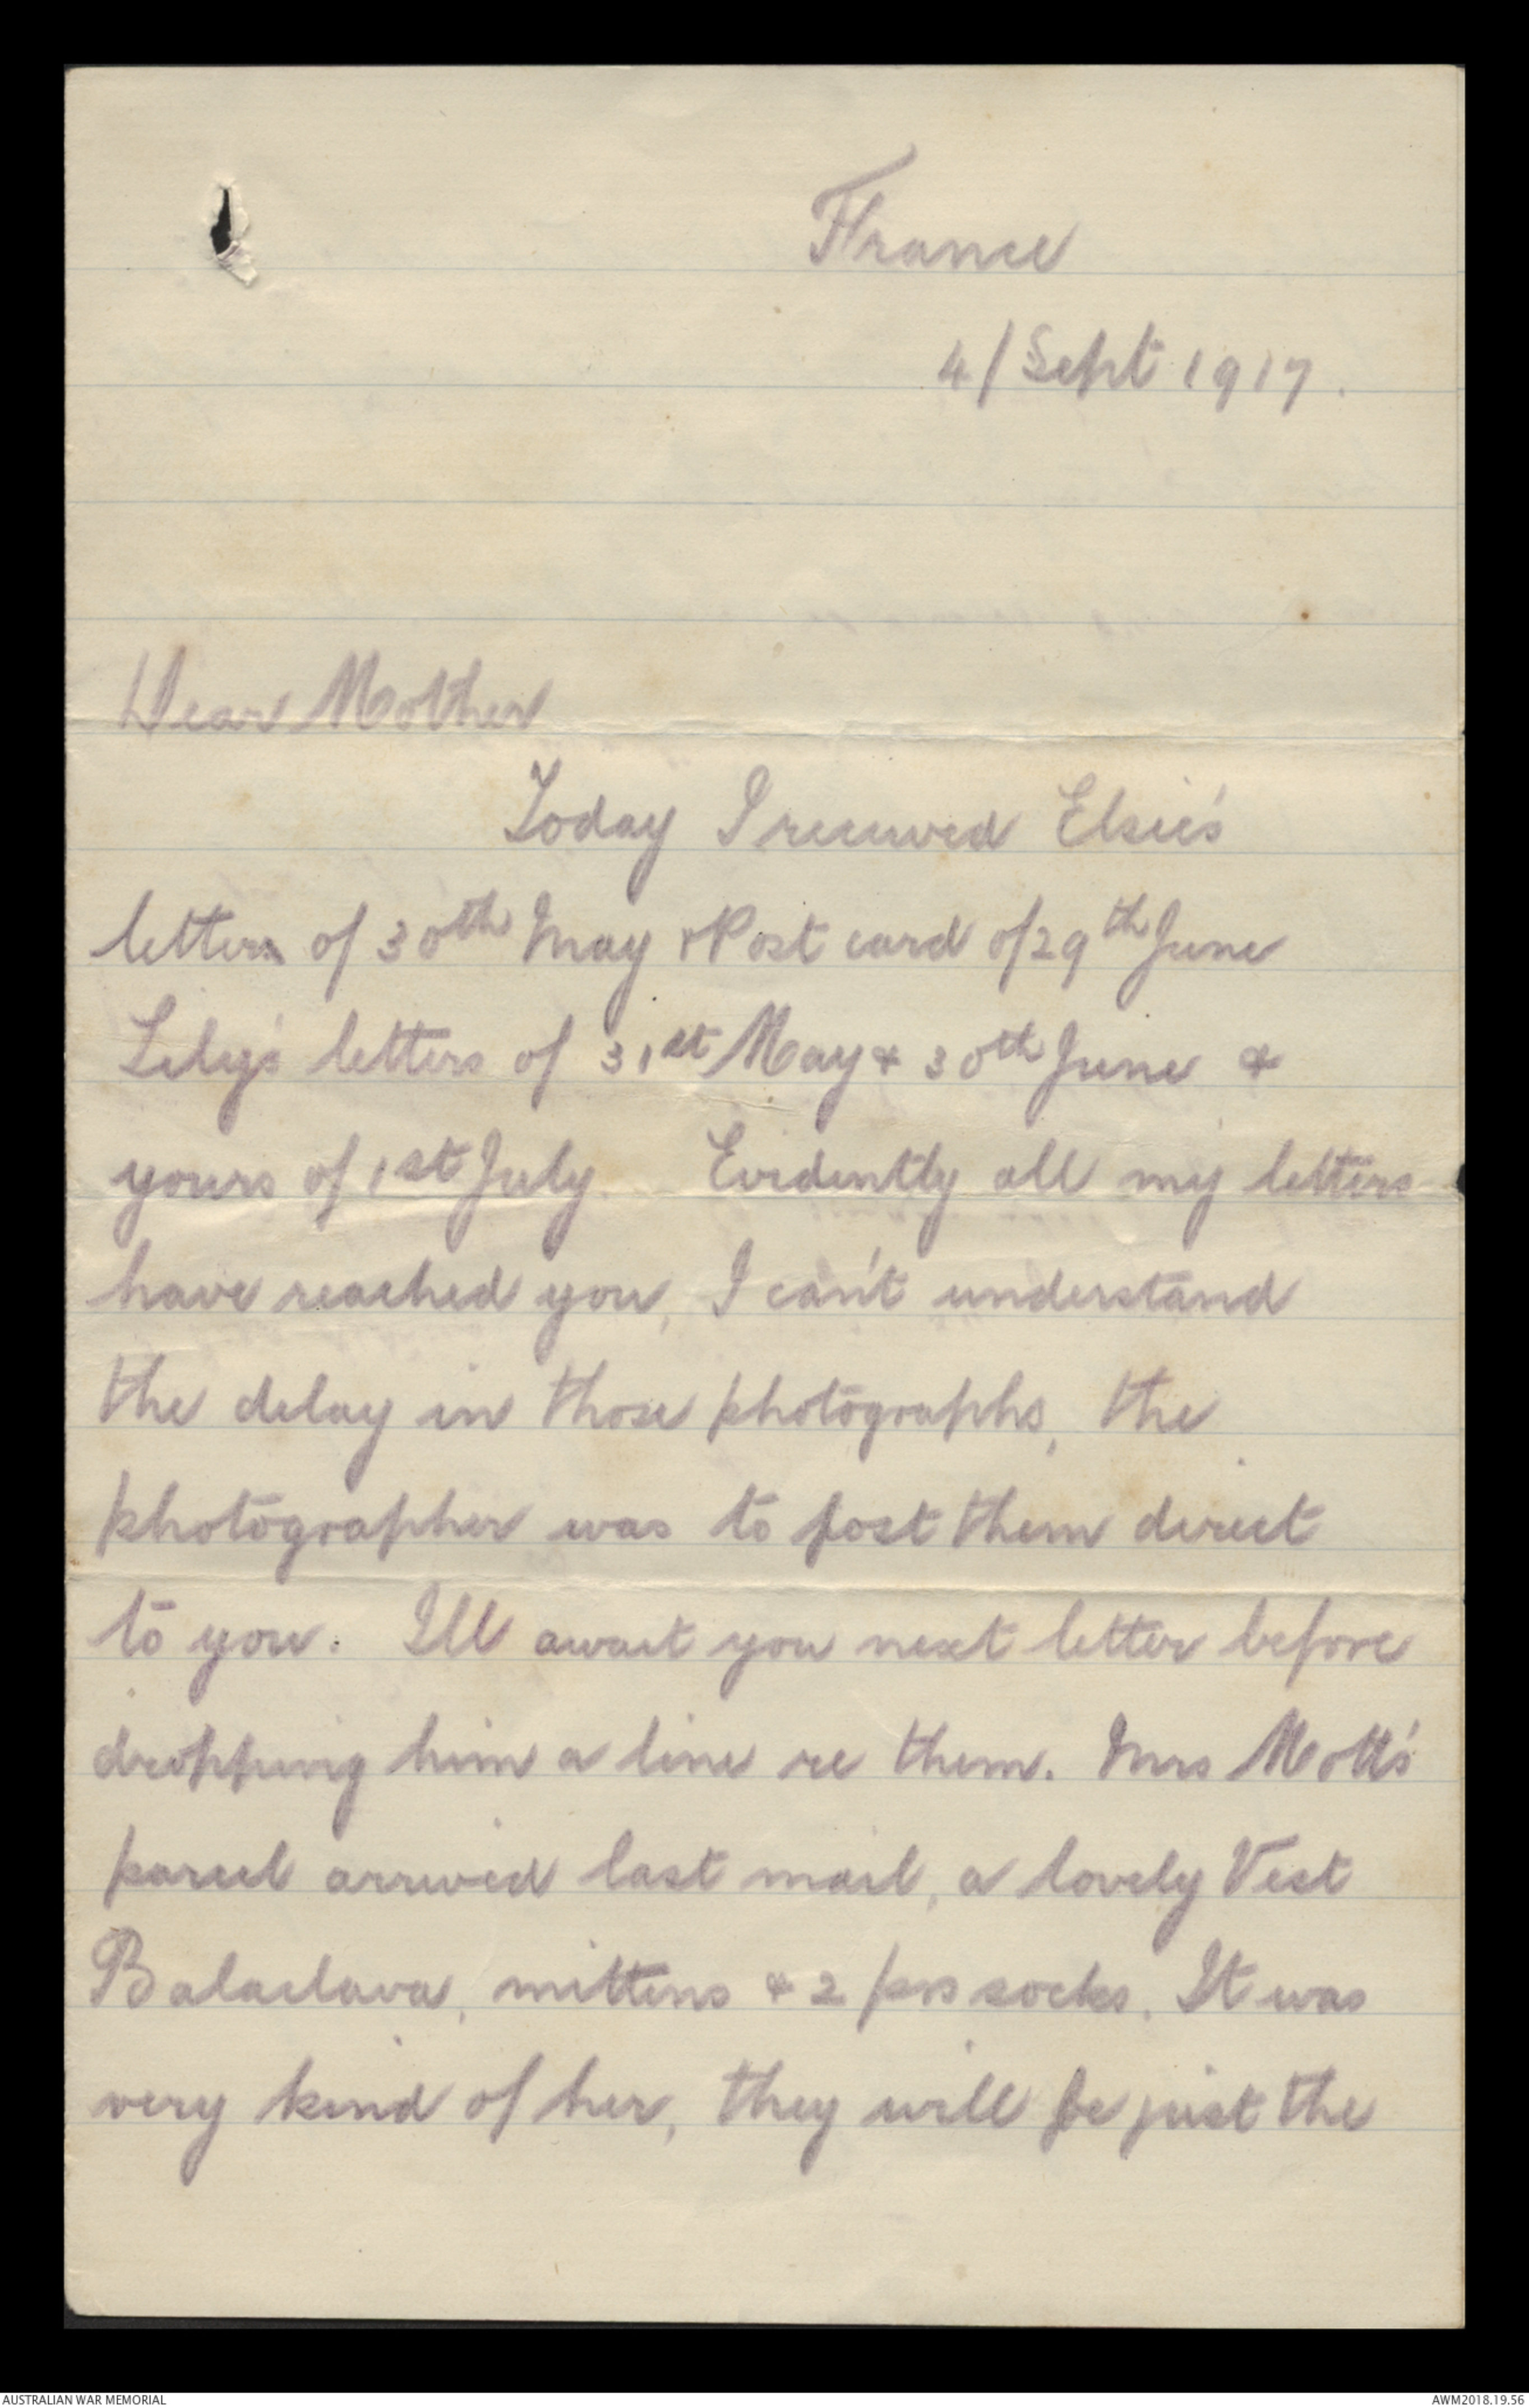 France
4/Sept 1917.
Dear Mother
Today I received Elsie's
letter of 30th May & Post card of 29th June
Lily's letters of 31st May & 30th June &
yours of 1st July. Evidently all my letters
have reached you, I can't understand
the delay in those photographs, the
photographer was to post them direct
to you. Ill await you next letter before
dropping him a line re them. Mrs Mott's
parcel arrived last mail, a lovely Vest
Balaclava, mittens & 2 prs socks. It was
very kind of her, they will be just the
AUSTRALIAN WAR MEMORIAL
AWM2018.19.56